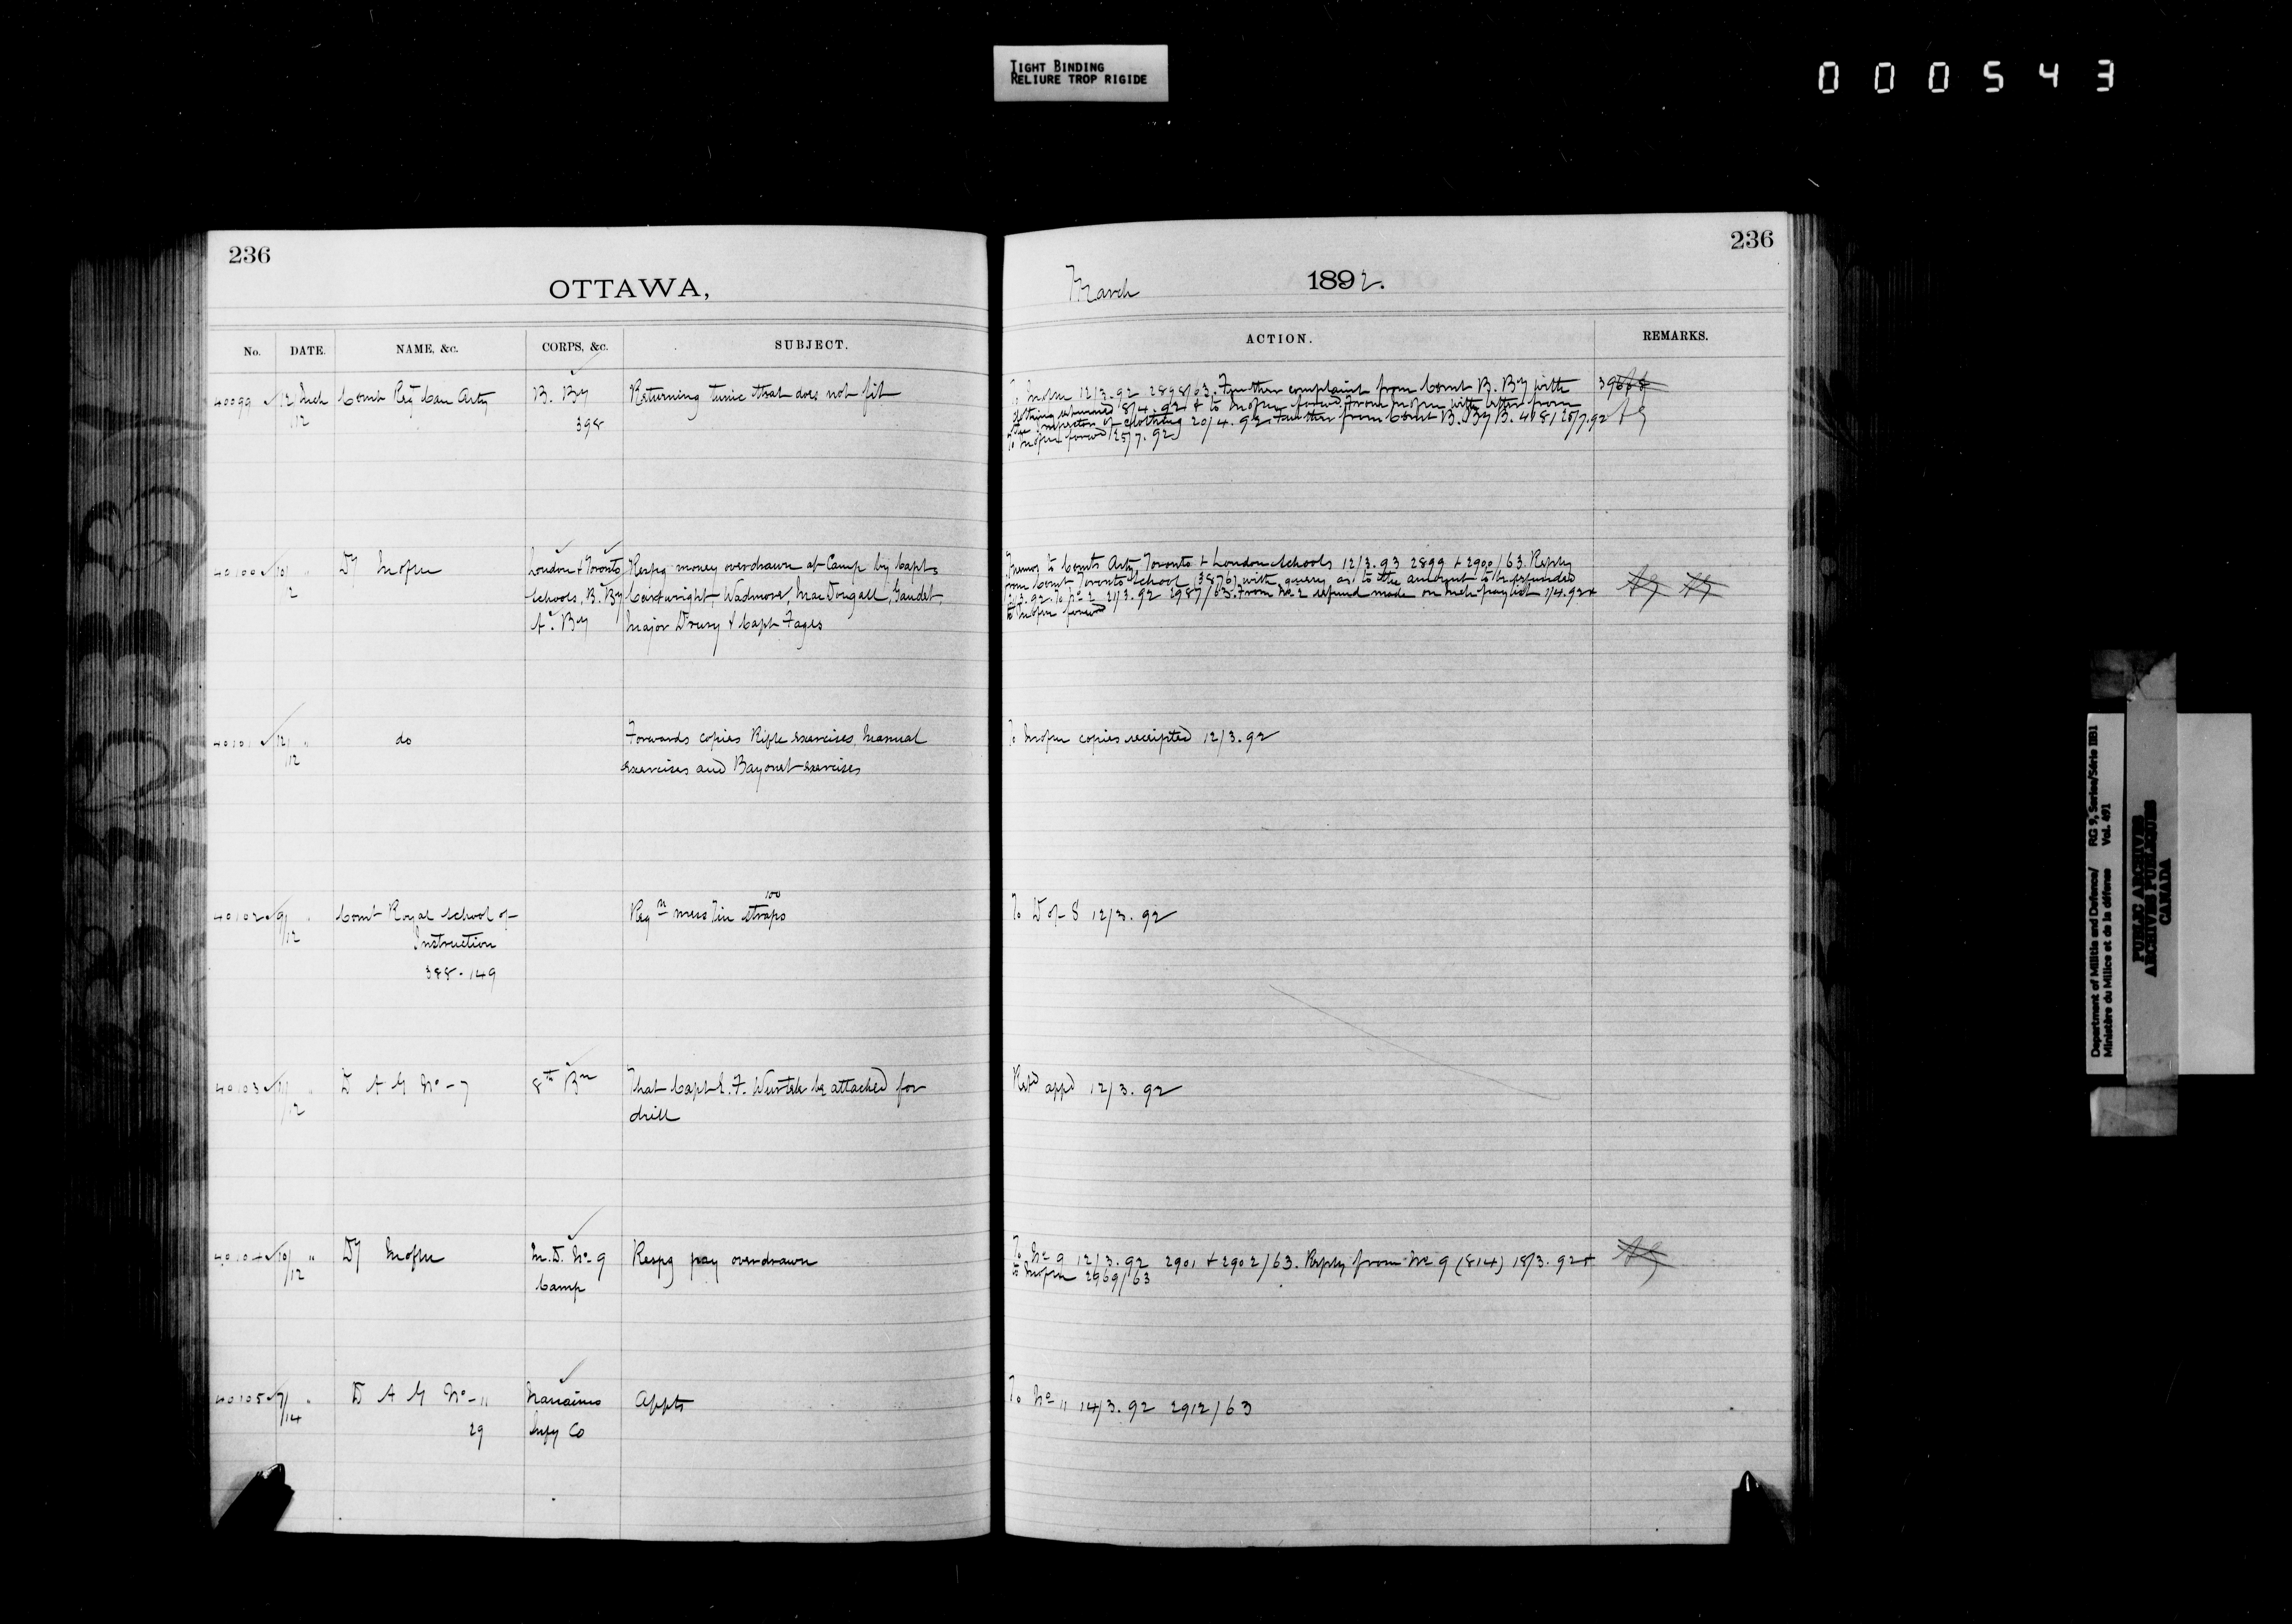 TIGHT BINDING
RELIURE TROP RIGIDE
000543
236
OTTAWA,
No. DATE. NAME, &c. CORPS, &c. SUBJECT.
40099 12 Mch Comt Reg Can Arty B. By Returning tunic that does not fit
12 398
40100 10/ " London & Toronto Respg money overdrawn at Camp by Capts
12 Schools, B. By Cartwright, Wadmore, MacDougall, Gaudet,
A. By Major Drury & Capt Fages
40101 12/ " do Forwards copies Rifle exercises, Manual
/12 exercises and Bayonet exercises
100
40102 9/ " Comt Royal School of Reqn mess tin straps
/12 Instruction
388.149
40103 11/ " D A G No - 7 8th Bn That Capt E. F. Wurtele be attached for
/12 drill
40104 10/ " M. D. No 9 Respg pay overdrawn
/12 Camp
40105 7/ " D A G No - 11 Nanaimo Appts
/14 29 Infy Co
236
March 1892.
ACTION. REMARKS.
To 12/3.92 2898/63. Further complaint from Comt B. By with
clothing returned 8/4.92 & to with letter from
of clothing 20/4.92. Further from Comt B. By B. 4181 25/7.92 AG
To forwd 25/7.92
to Comts Arty, Toronto & London Schools 12/3.93 2899 & 2900/63. Reply
from Comt Toronto School (3876) with query as to the amount to be refunded
To No 2 21/3.92 2987/63. From No 2 refund made on Mch paylist 1/4.92 &
to forwd
To copies receipted 12/3.92
To D of S 12/3.92
appd 12/3.92
To No 9 12/3.92 2901 & 2902/63. Reply from No 9 (814) 18/3.92 &
to 2969/63
To No 11 14/3.92 2912/63
Department of Militia and Defence/ RG 9, Series/Série IIB1
Ministère du Milice et de la défense Vol. 491
PUBLIC ARCHIVES
ARCHIVES PUBLIQUES
CANADA